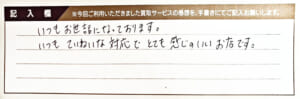 記入欄 ※今回ご利用いただきました買取サービスの感想を、手書きにてご記入お願いします。
いつもお世話になっております。
いつもていねいな対応でとても感じのいいお店です。